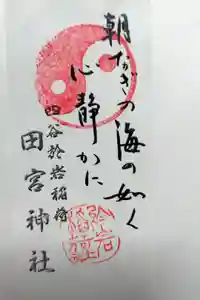 朝なぎの海の如く
心静かに
四谷於岩稲荷
田宮神社